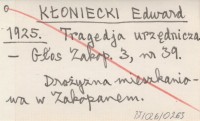 KŁONIECKI Edward
1925. Tragedja urzędnicza
– Głos Zakop. 3, nr 39.
Drożyzna mieszkanio-
wa w Zakopanem.